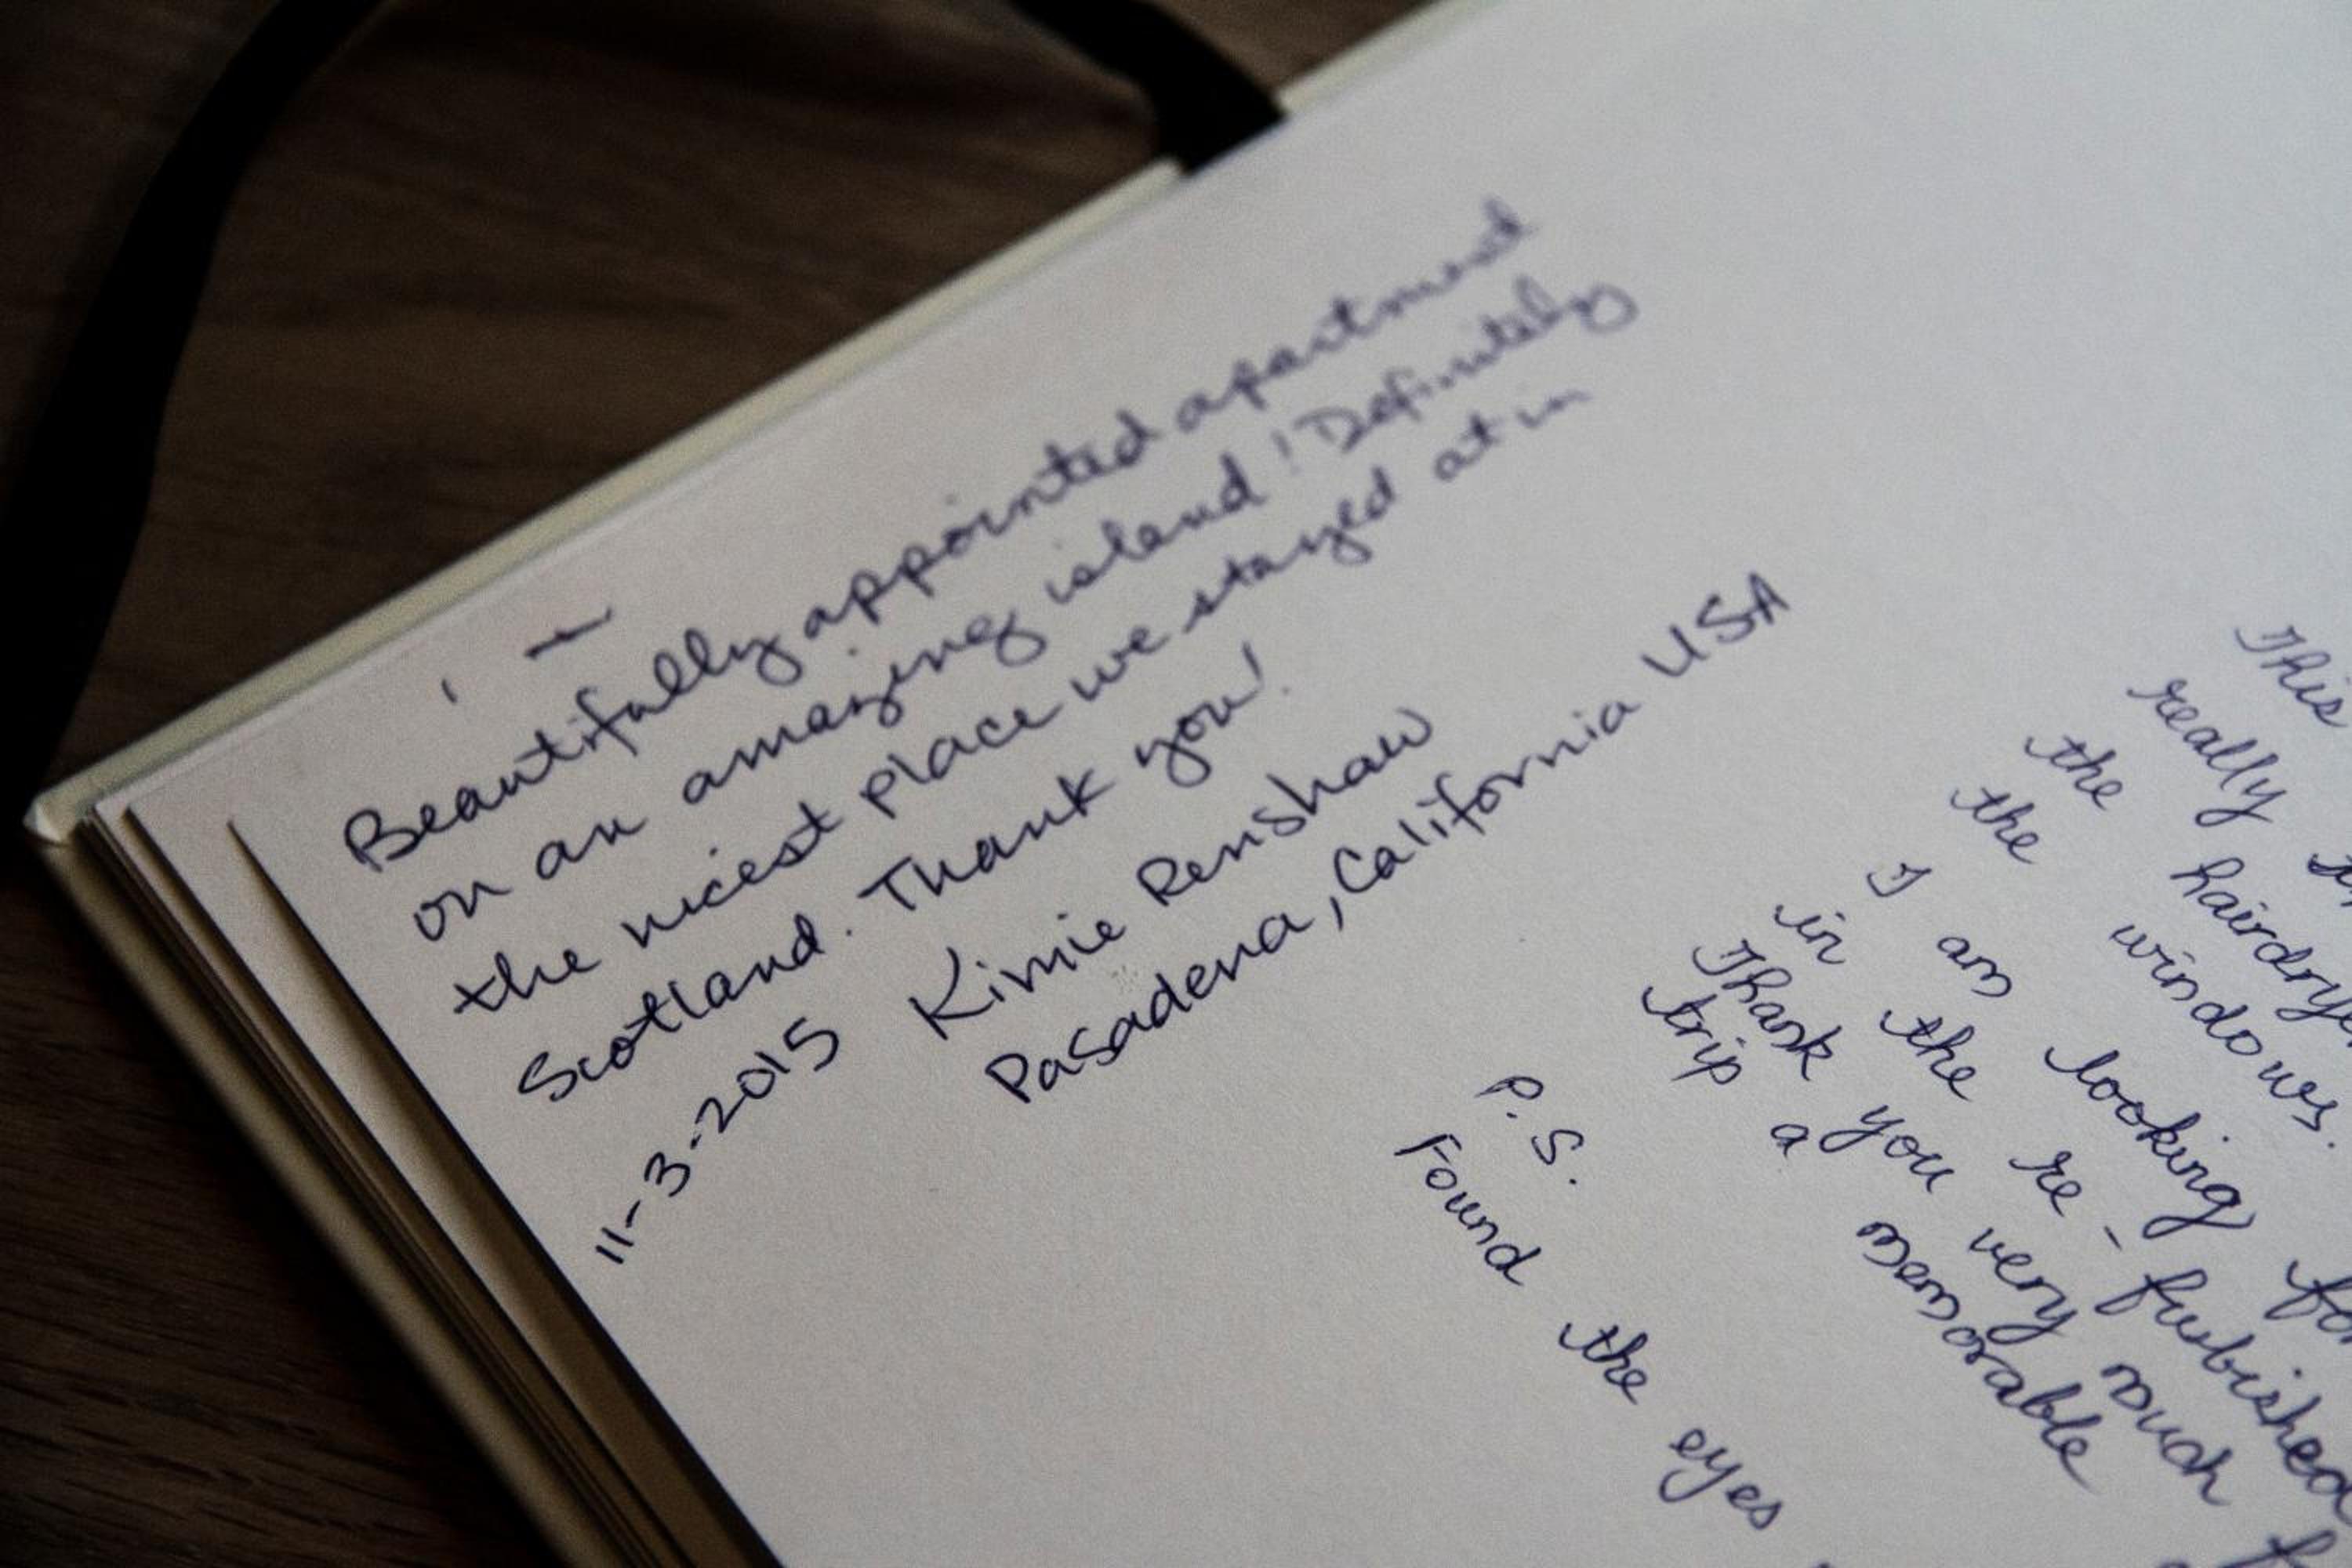 Beautifully appointed apartment
on an amazing island! Definitely
the nicest place we stayed at in
Scotland. Thank you!
11-3-2015 Kimie Renshaw
Pasadena, California USA
This
really
the hairdrye
the windows.
I am looking fo
in the re-furbished
Thank you very much f
trip a memorable
P.S.
Found the eyes